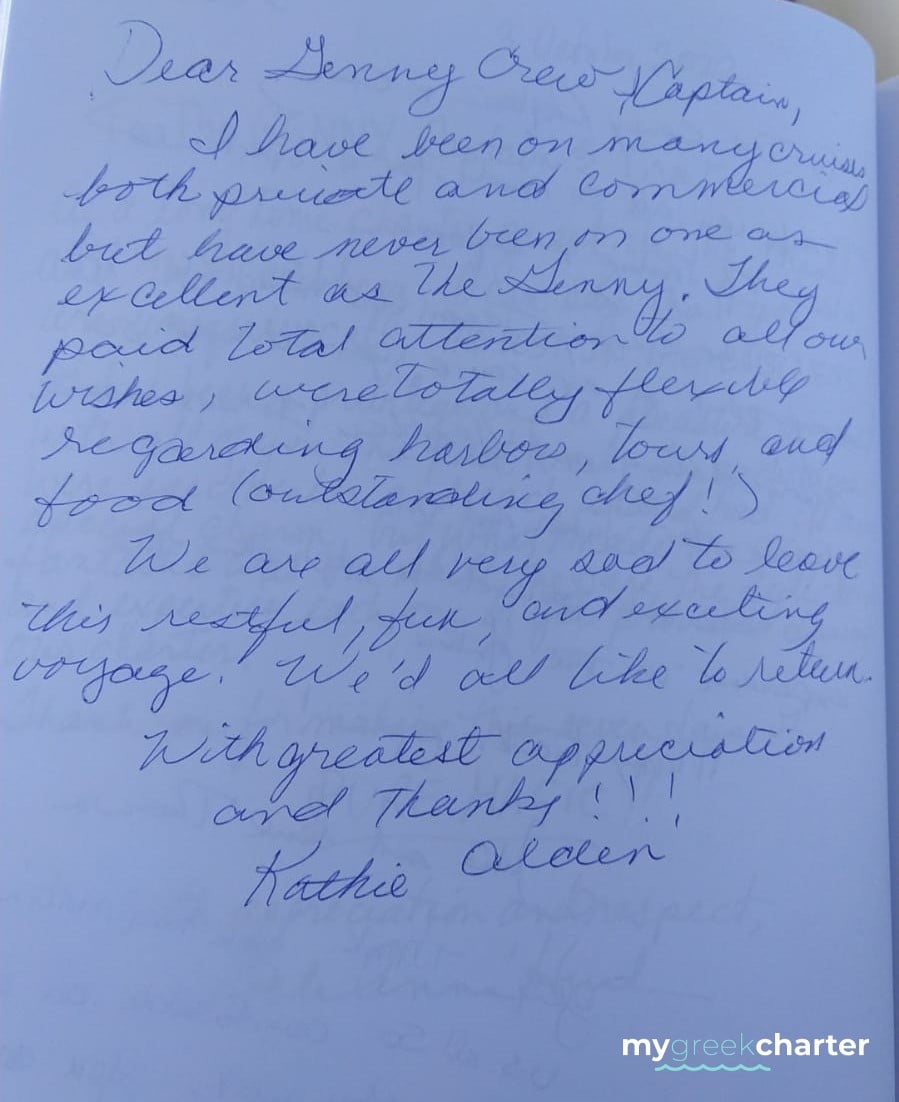 Dear Genny Crew + Captain,
I have been on many cruises
both private and commercial
but have never been on one as
excellent as the Genny. They
paid total attention to all our
wishes, were totally flexible
regarding harbors, tours, and
food (outstanding chef!)
We are all very sad to leave
this restful, fun, and exciting
voyage. We'd all like to return.
With greatest appreciation
and Thanks!!!
Kathie Alden
mygreekcharter